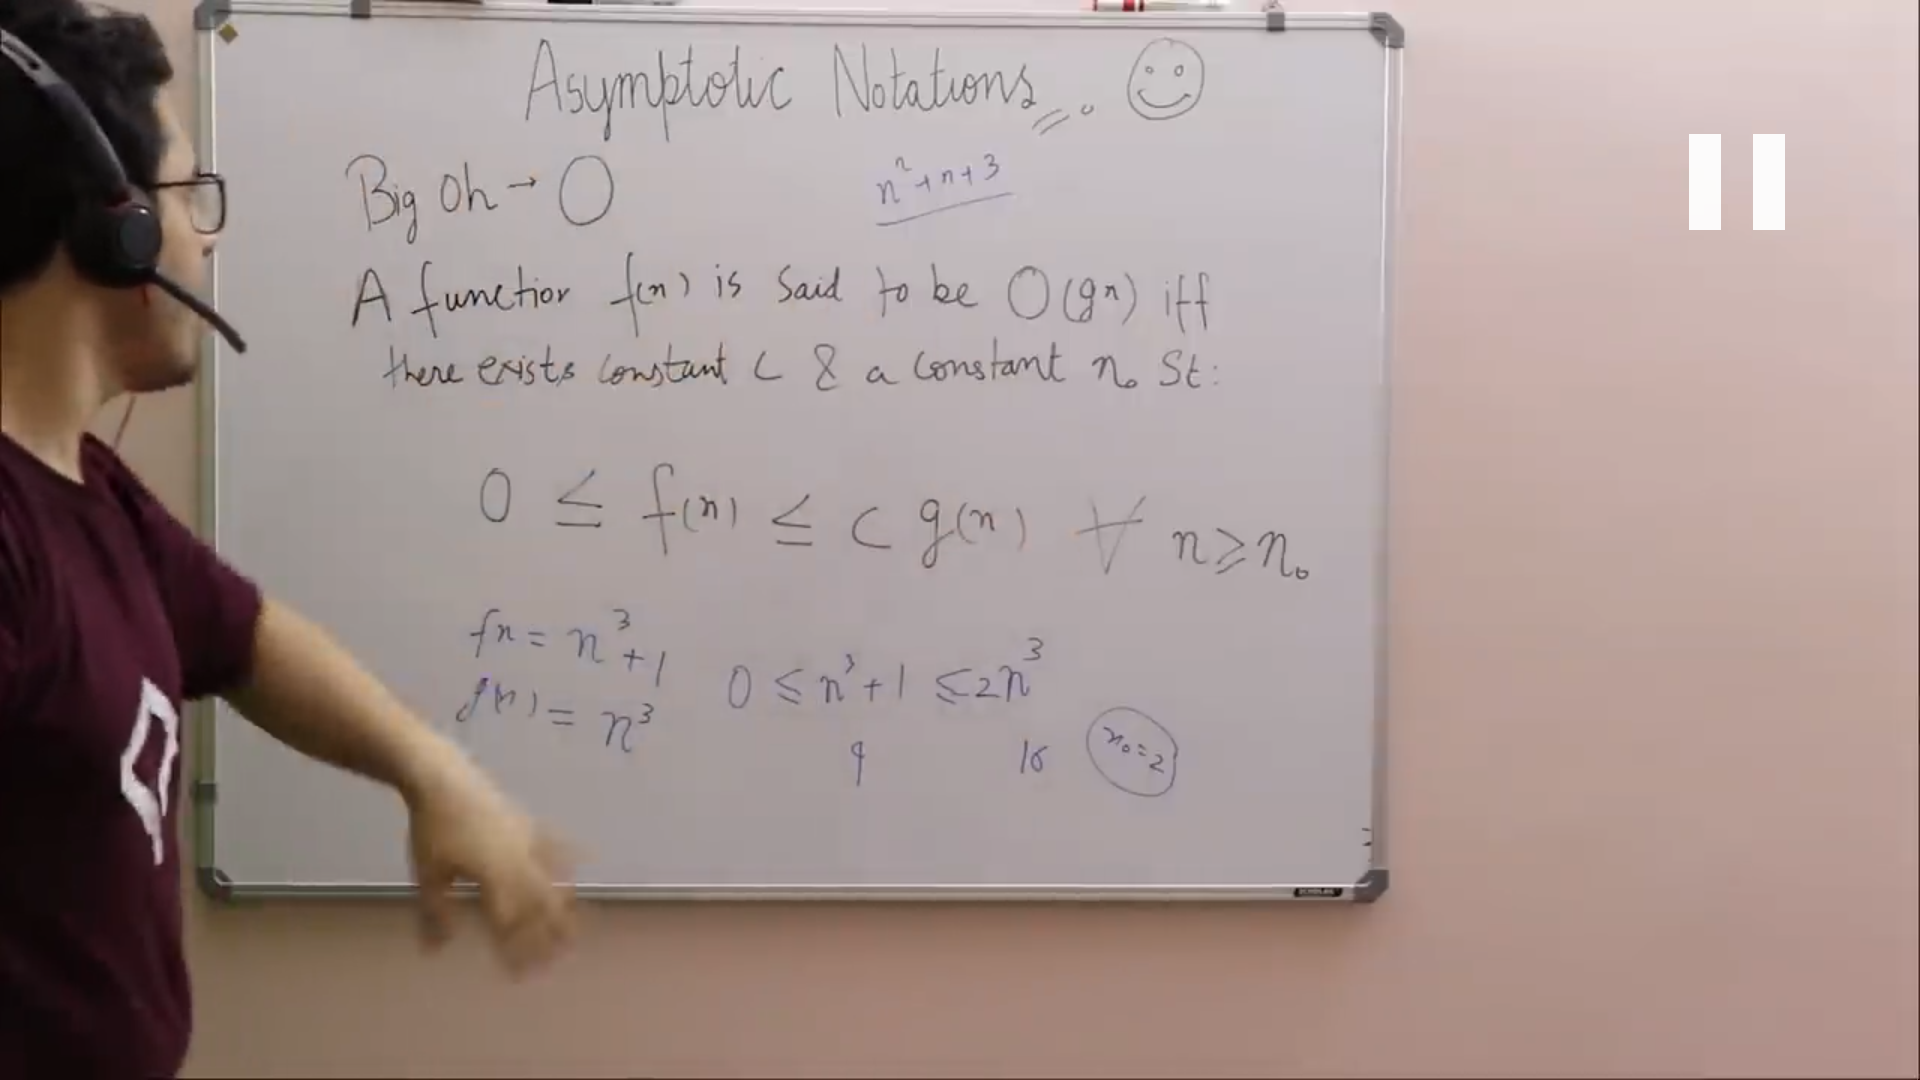 Asymptotic Notations
Big Oh → O
n²+n+3
A function f(n) is said to be O(gn) iff
there exists constant C & a constant n₀ St:
0 ≤ f(n) ≤ c g(n) ∀ n≥n₀
fn = n³+1
g(n) = n³
0 ≤ n³+1 ≤ 2n³
9 16 n₀=2